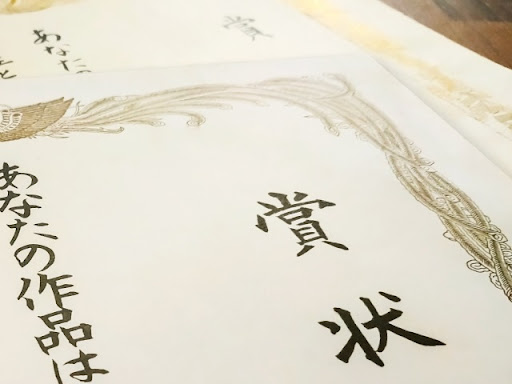 賞状
あなたの作品は
賞
あなたの